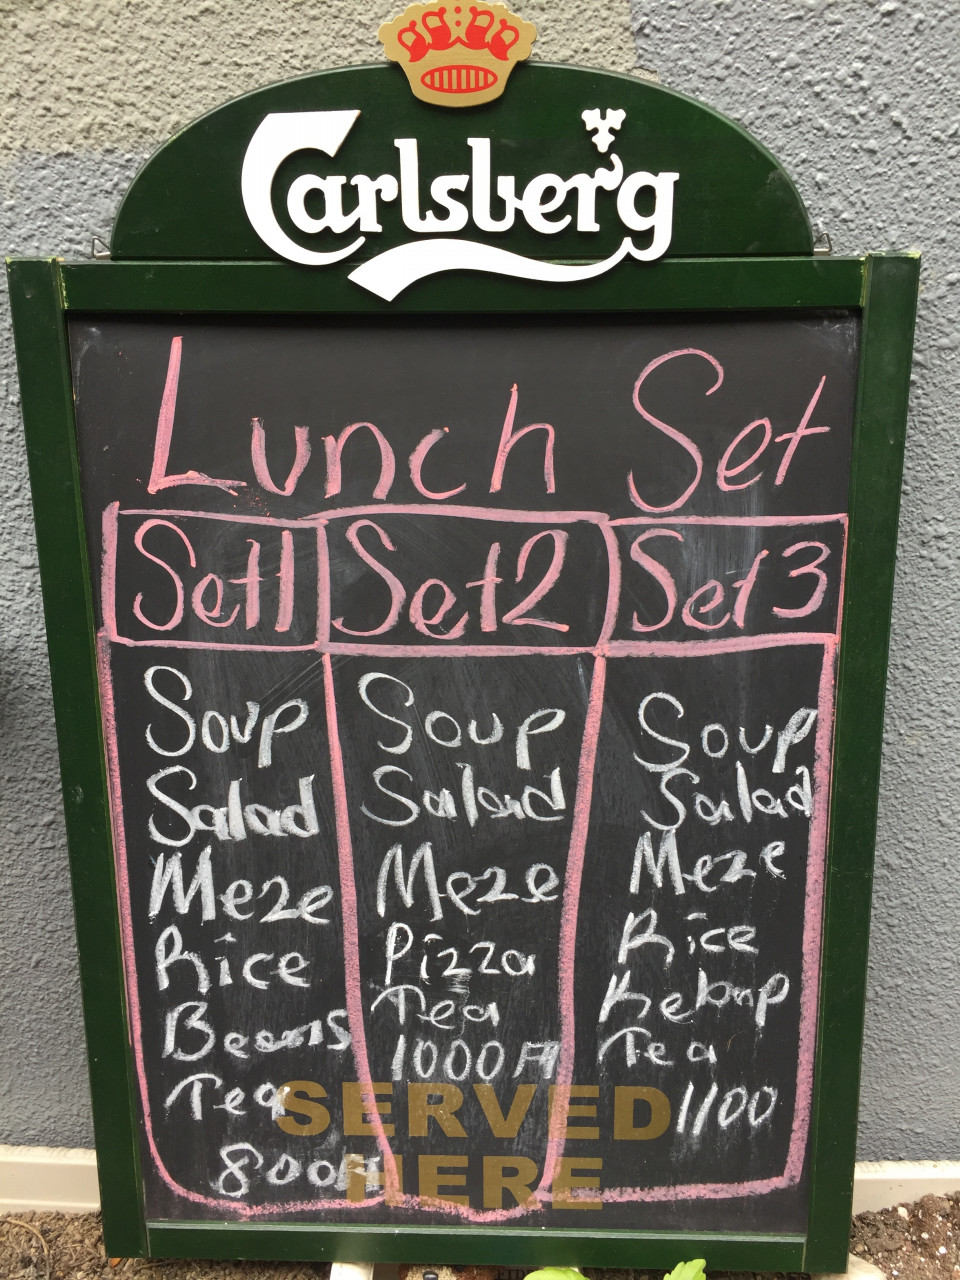 Carlsberg
Lunch Set
Set1
Soup
Salad
Meze
Rice
Beans
Tea
800円
Set2
Soup
Salad
Meze
Pizza
Tea
1000円
Set3
Soup
Salad
Meze
Rice
Kebap
Tea
1100
SERVED
HERE